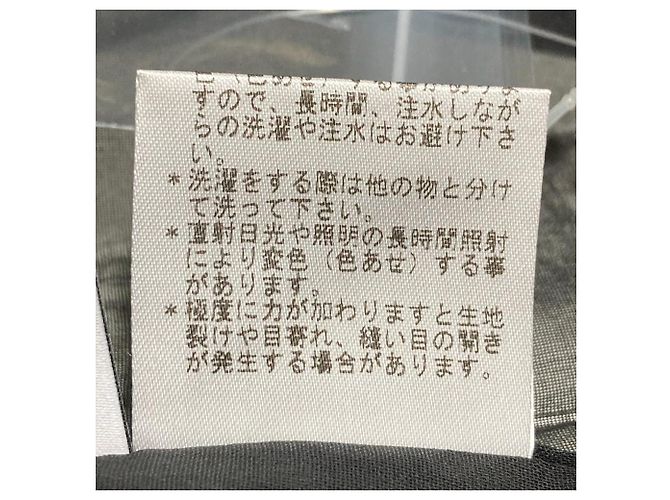 色（色あせ）する事がありま
すので、長時間、注水しなが
らの洗濯や注水はお避け下さ
い。
*洗濯をする際は他の物と分け
て洗って下さい。
*直射日光や照明の長時間照射
により変色（色あせ）する事
があります。
*極度に力が加わりますと生地
裂けや目寄れ、縫い目の開き
が発生する場合があります。